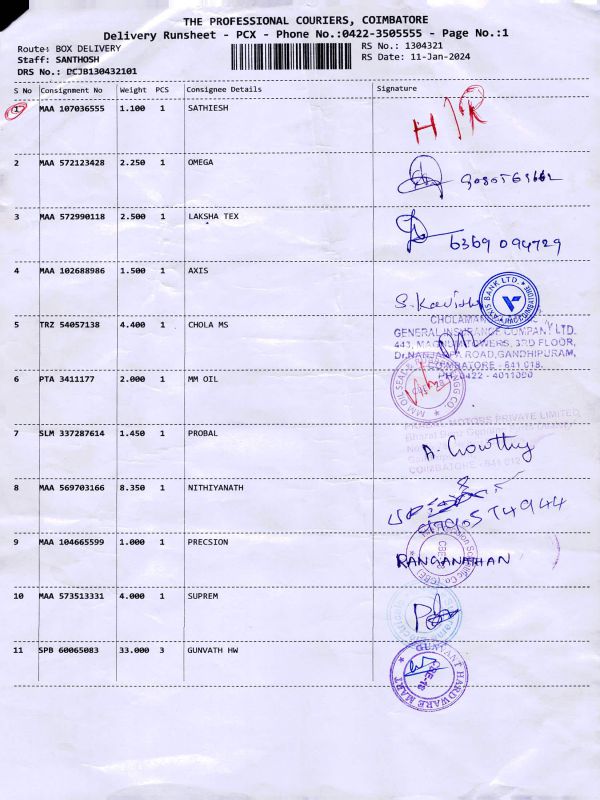 THE PROFESSIONAL COURIERS, COIMBATORE
Delivery Runsheet - PCX - Phone No.:0422-3505555 - Page No.:1
Route: BOX DELIVERY
RS No.: 1304321
Staff: SANTHOSH
RS Date: 11-Jan-2024
DRS No.: DCJB130432101
S No Consignment No Weight PCS Consignee Details Signature
1 MAA 107036555 1.100 1 SATHIESH
2 MAA 572123428 2.250 1 OMEGA
3 MAA 572990118 2.500 1 LAKSHA TEX
6369 094729
4 MAA 102688986 1.500 1 AXIS
AXIS BANK LTD.
5 TRZ 54057138 4.400 1 CHOLA MS
GENERAL INSURANCE COMPANY LTD.
443, TOWERS, 3RD FLOOR,
ROAD, GANDHIPURAM,
COIMBATORE - 641 018.
PH: 0422 - 4011000
6 PTA 3411177 2.000 1 MM OIL
MM OIL SEAL
7 SLM 337287614 1.450 1 PROBAL
MOTORS PRIVATE LIMITED
A. Gowthy
COIMBATORE - 641 012
8 MAA 569703166 8.350 1 NITHIYANATH
9 MAA 104665599 1.000 1 PRECSION
RANGANATHAN
10 MAA 573513331 4.000 1 SUPREM
11 SPB 60065083 33.000 3 GUNVATH HW
GUNVANT HARDWARE MART
CBE-18